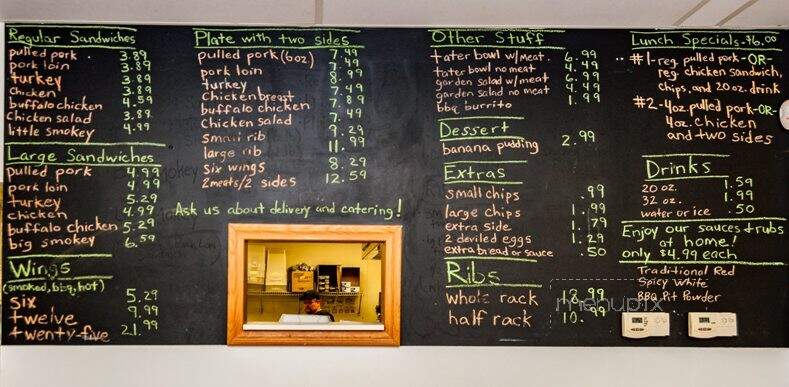 Regular Sandwiches
pulled pork 3.89
pork loin 3.89
turkey 3.89
chicken 3.89
buffalo chicken 4.59
chicken salad 3.89
little smokey 4.99
Large Sandwiches
pulled pork 4.99
pork loin 4.99
turkey 5.29
chicken 4.99
buffalo chicken 5.29
big smokey 6.59
Wings
(smoked, bbq, hot)
six 5.29
twelve 9.99
twenty-five 21.99
Plate with two sides
pulled pork (6oz) 7.49
pork loin 7.49
turkey 8.99
chicken breast 7.49
buffalo chicken 7.89
chicken salad 7.49
small rib 9.29
large rib 11.99
six wings 8.29
2 meats/2 sides 12.59
Ask us about delivery and catering!
Other Stuff
tater bowl w/meat 6.99
tater bowl no meat 4.49
garden salad w/meat 6.99
garden salad no meat 4.49
bbq burrito 1.99
Dessert
banana pudding 2.99
Extras
small chips .99
large chips 1.99
extra side 1.79
2 deviled eggs 1.29
extra bread or sauce .50
Ribs
whole rack 18.99
half rack 10.99
Lunch Specials-$6.00
#1-reg. pulled pork-OR-
reg. chicken sandwich,
chips, and 20 oz. drink
#2-4oz. pulled pork-OR-
4oz. chicken
and two sides
Drinks
20 oz. 1.59
32 oz. 1.99
water or ice .50
Enjoy our sauces + rubs
at home!
only $4.99 each
Traditional Red
Spicy White
BBQ Pit Powder
menupix